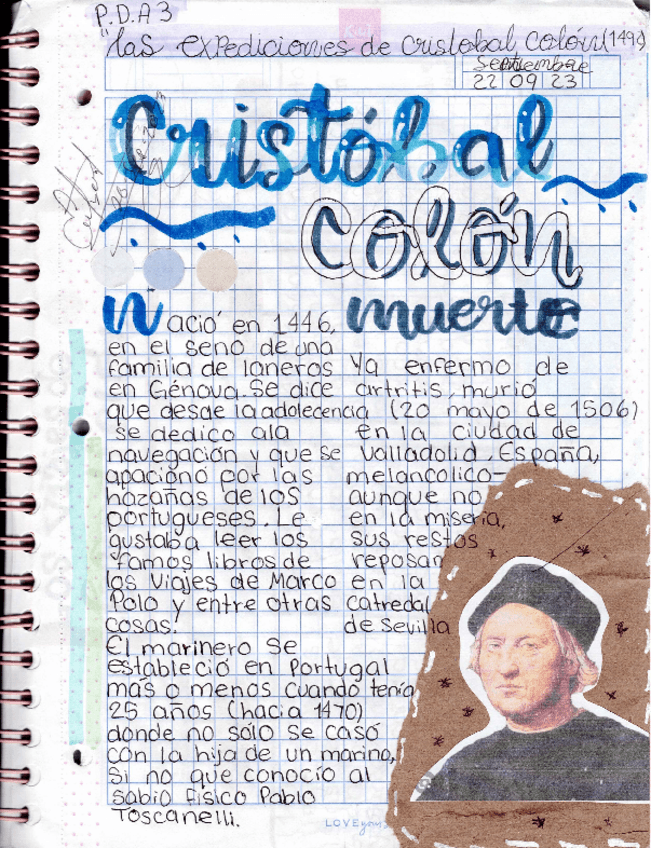 P.D.A 3
"las expediciones de cristobal colón (1492)
Septiembre
22 09 23
Cristóbal
colón
Nació en 1446,
en el seno de una
familia de laneros
en Génova. Se dice
que desde la adolecencia
se dedico ala
navegación y que se
apaciono por las
hazañas de los
portugueses. Le
gustaba leer los
famos libros de
los viajes de Marco
Polo y entre otras
cosas.
El marinero se
estableció en Portugal
más o menos cuando tenía
25 años (hacia 1470)
donde no sólo se casó
con la hija de un marino,
si no que conocío al
sabio físico Pablo
Toscanelli.
muerte
Ya enfermo de
artritis, murió
(20 mayo de 1506)
en la ciudad de
Valladolid, España,
melancolico-
aunque no
en la miseria,
sus restos
reposan
en la
catredal
de sevilla